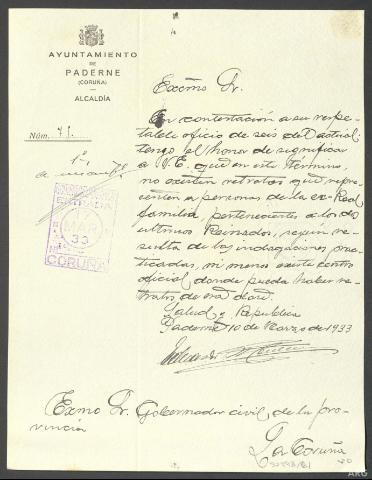 AYUNTAMIENTO
DE
PADERNE
(CORUÑA)
ALCALDÍA
Núm. 71.
Excmo Sr.
En contestación a su respe-
table oficio de seis del actual,
tengo el honor de significar
a V.E. que en este término,
no existen retratos que repre-
senten a personas de la ex-Real
familia, pertenecientes a los dos
ultimos Reinados, según re-
sulta de las indagaciones prac-
ticadas, ni menos existe centro
oficial donde pueda haber re-
tratos de esa clase.
Salud y Republica
Paderne 10 de Marzo de 1933
Eduardo
ENTRADA
17
MAR
33
CORUÑA
Exmo Sr. Gobernador civil de la pro-
vincia
La Coruña
ARG